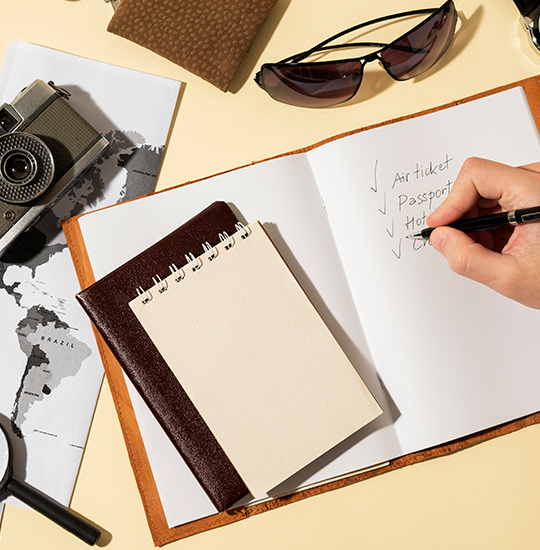 ✓ Air ticket
✓ Passport
✓ Hot
✓
BRAZIL